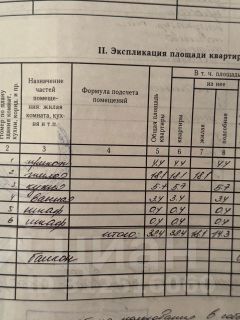 II. Экспликация площади квартир
Номер по плану здания комнат, кухни, корид. и пр.
Назначение частей помещения жилая комната, кухня и т.п.
Формула подсчета помещений
Общая площадь квартиры
В т. ч. площадь
квартиры
из нее
жилая
подсобная
2 3 4 5 6 7 8
1 4.4 4.4
2 жилая 18.1 18.1 18.1
3 кухня 5.7 5.7 5.7
4 ванная 3.4 3.4 3.4
5 шкаф 0.4 0.4 0.4
6 шкаф 0.4 0.4 0.4
итого: 32.4 32.4 18.1 14.3
балкон